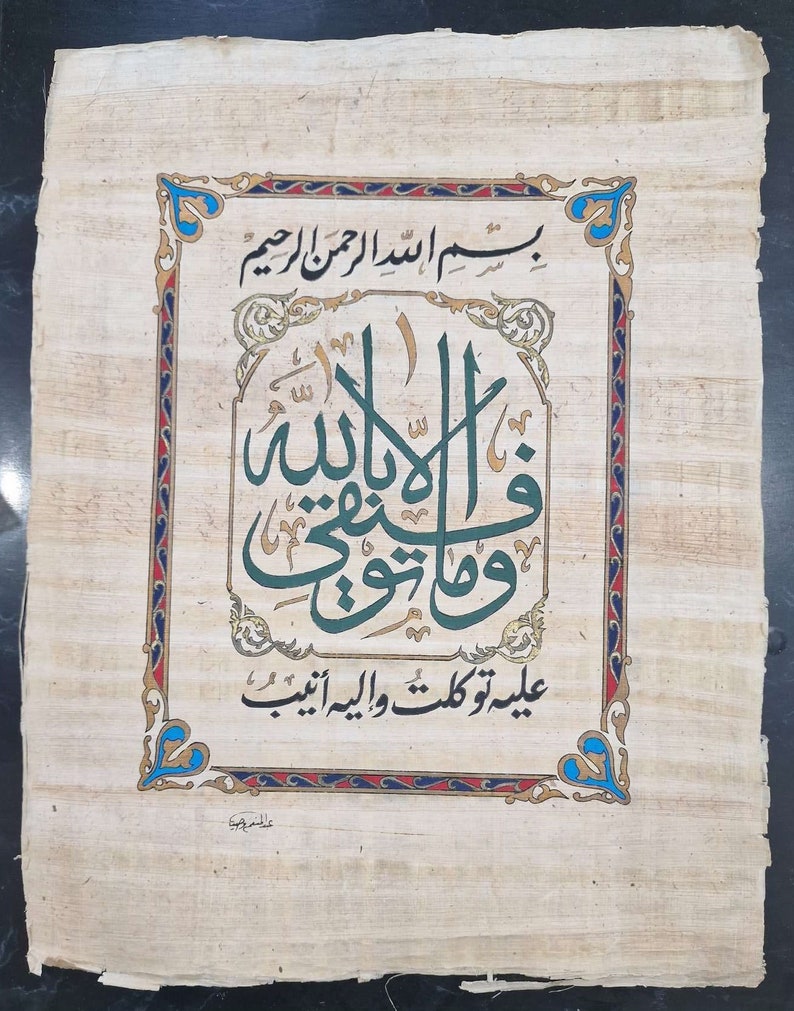 بِسْمِ اللَّهِ الرَّحْمَنِ الرَّحِيمِ
وما توفيقي إلا بالله
عليه توكلتُ وإليه أنيبُ